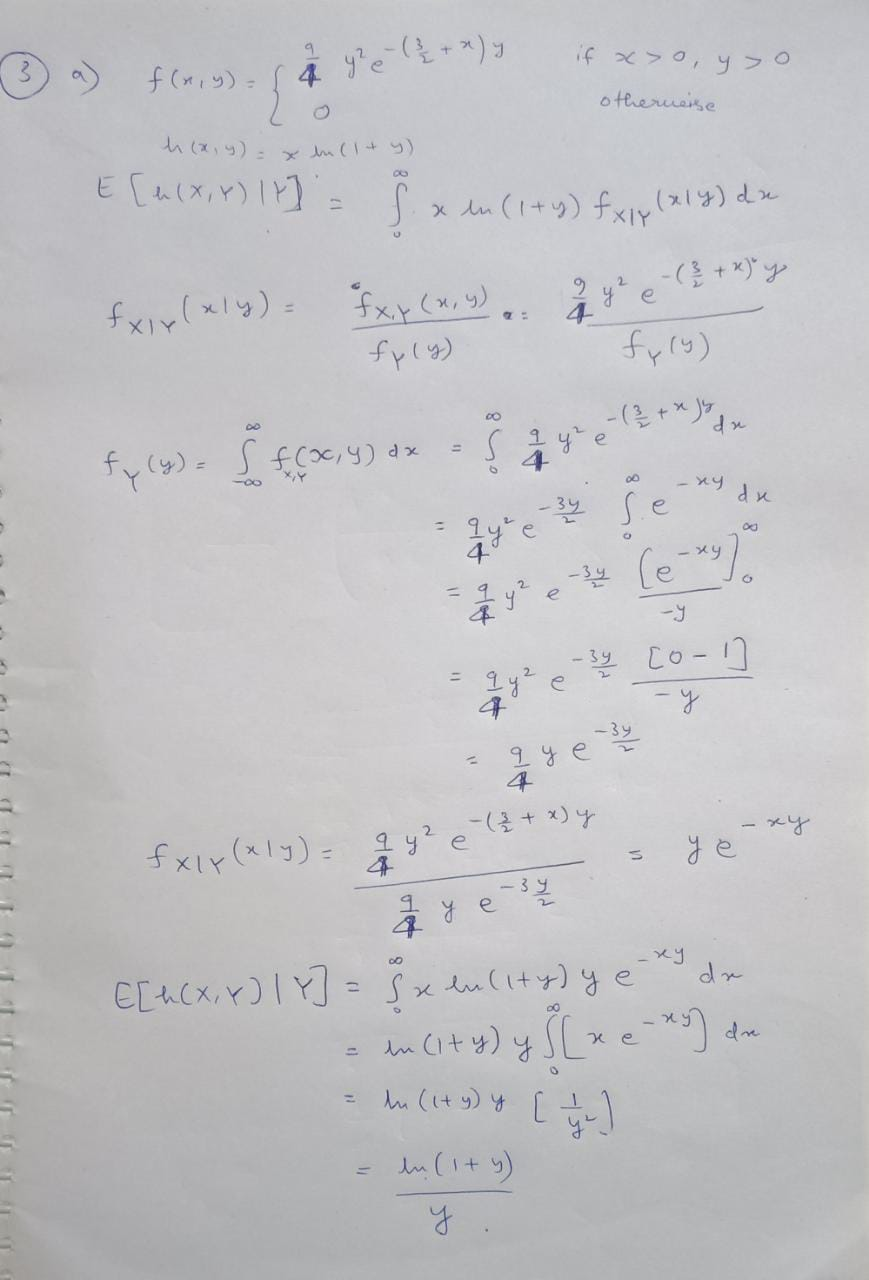 ③ a) f(x,y) = { 9/4 y² e^-(3/2 + x) y if x > 0, y > 0
0 otherwise
h(x,y) = x ln(1 + y)
E [h(X,Y) | Y] = ∫₀^∞ x ln(1+y) f_X|Y (x|y) dx
f_X|Y (x|y) = f_X,Y (x,y) / f_Y(y) = 9/4 y² e^-(3/2 + x) y / f_Y(y)
f_Y(y) = ∫_-∞^∞ f_X,Y(x,y) dx = ∫₀^∞ 9/4 y² e^-(3/2 + x)y dx
= 9/4 y² e^-3y/2 ∫₀^∞ e^-xy dx
= 9/4 y² e^-3y/2 [e^-xy]₀^∞ / -y
= 9/4 y² e^-3y/2 [0 - 1] / -y
= 9/4 y e^-3y/2
f_X|Y (x|y) = 9/4 y² e^-(3/2 + x) y / 9/4 y e^-3 y/2 = y e^-xy
E[h(X,Y) | Y] = ∫₀^∞ x ln(1+y) y e^-xy dx
= ln(1+y) y ∫₀^∞ [x e^-xy] dx
= ln(1+y) y [1/y²]
= ln(1+y) / y .